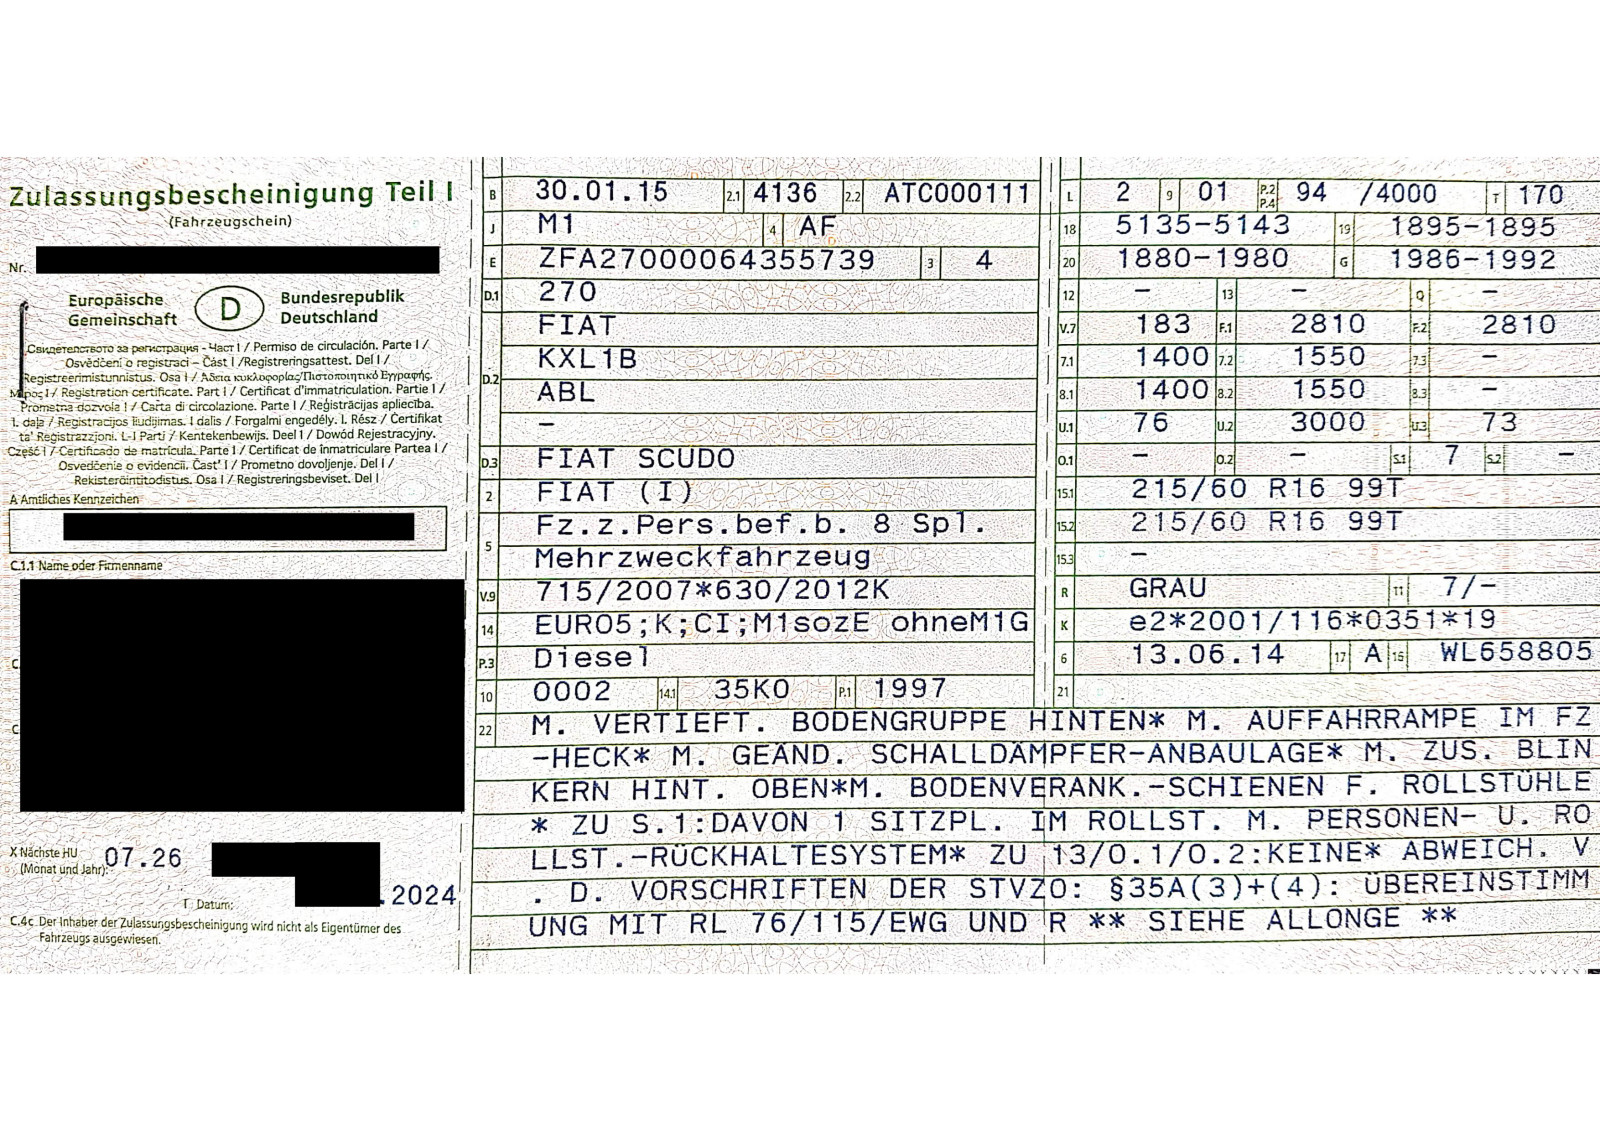 Zulassungsbescheinigung Teil I
(Fahrzeugschein)
Nr.
Europäische Gemeinschaft
D
Bundesrepublik Deutschland
Свидетелството за регистрация - Част I / Permiso de circulación. Parte I /
Osvědčení o registraci – Část I /Registreringsattest. Del I /
Registreerimistunnistus. Osa I / Άδεια κυκλοφορίας/Πιστοποιητικό Εγγραφής.
Μέρος I / Registration certificate. Part I / Certificat d'immatriculation. Partie I /
Prometna dozvola I / Carta di circolazione. Parte I / Reģistrācijas apliecība.
I. daļa / Registracijos liudijimas. I dalis / Forgalmi engedély. I. Rész / Ċertifikat
ta' Reġistrazzjoni. L-I Parti / Kentekenbewijs. Deel I / Dowód Rejestracyjny.
Część I / Certificado de matrícula. Parte I / Certificat de înmatriculare Partea I /
Osvedčenie o evidencii. Časť I / Prometno dovoljenje. Del I /
Rekisteröintitodistus. Osa I / Registreringsbeviset. Del I
A Amtliches Kennzeichen
C.1.1 Name oder Firmenname
C.
C
X Nächste HU
(Monat und Jahr):
07.26
I Datum:
.2024
C.4c Der Inhaber der Zulassungsbescheinigung wird nicht als Eigentümer des
Fahrzeugs ausgewiesen.
B 30.01.15 2.1 4136 2.2 ATC000111
J M1 4 AF
E ZFA27000064355739 3 4
D.1 270
FIAT
D.2 KXL1B
ABL
–
D.3 FIAT SCUDO
2 FIAT (I)
5 Fz.z.Pers.bef.b. 8 Spl.
Mehrzweckfahrzeug
V.9 715/2007*630/2012K
14 EURO5;K;CI;M1sozE ohneM1G
P.3 Diesel
10 0002 14.1 35K0 P.1 1997
L 2 9 01 P.2 P.4 94 /4000 T 170
18 5135–5143 19 1895–1895
20 1880–1980 G 1986–1992
12 – 13 – Q –
V.7 183 F.1 2810 F.2 2810
7.1 1400 7.2 1550 7.3 –
8.1 1400 8.2 1550 8.3 –
U.1 76 U.2 3000 U.3 73
O.1 – O.2 – S.1 7 S.2 –
15.1 215/60 R16 99T
15.2 215/60 R16 99T
15.3 –
R GRAU 11 7/–
K e2*2001/116*0351*19
6 13.06.14 17 A 16 WL658805
21
22 M. VERTIEFT. BODENGRUPPE HINTEN* M. AUFFAHRRAMPE IM FZ
–HECK* M. GEÄND. SCHALLDÄMPFER–ANBAULAGE* M. ZUS. BLIN
KERN HINT. OBEN*M. BODENVERANK.–SCHIENEN F. ROLLSTÜHLE
* ZU S.1:DAVON 1 SITZPL. IM ROLLST. M. PERSONEN– U. RO
LLST.–RÜCKHALTESYSTEM* ZU 13/O.1/O.2:KEINE* ABWEICH. V
. D. VORSCHRIFTEN DER STVZO: §35A(3)+(4): ÜBEREINSTIMM
UNG MIT RL 76/115/EWG UND R ** SIEHE ALLONGE **